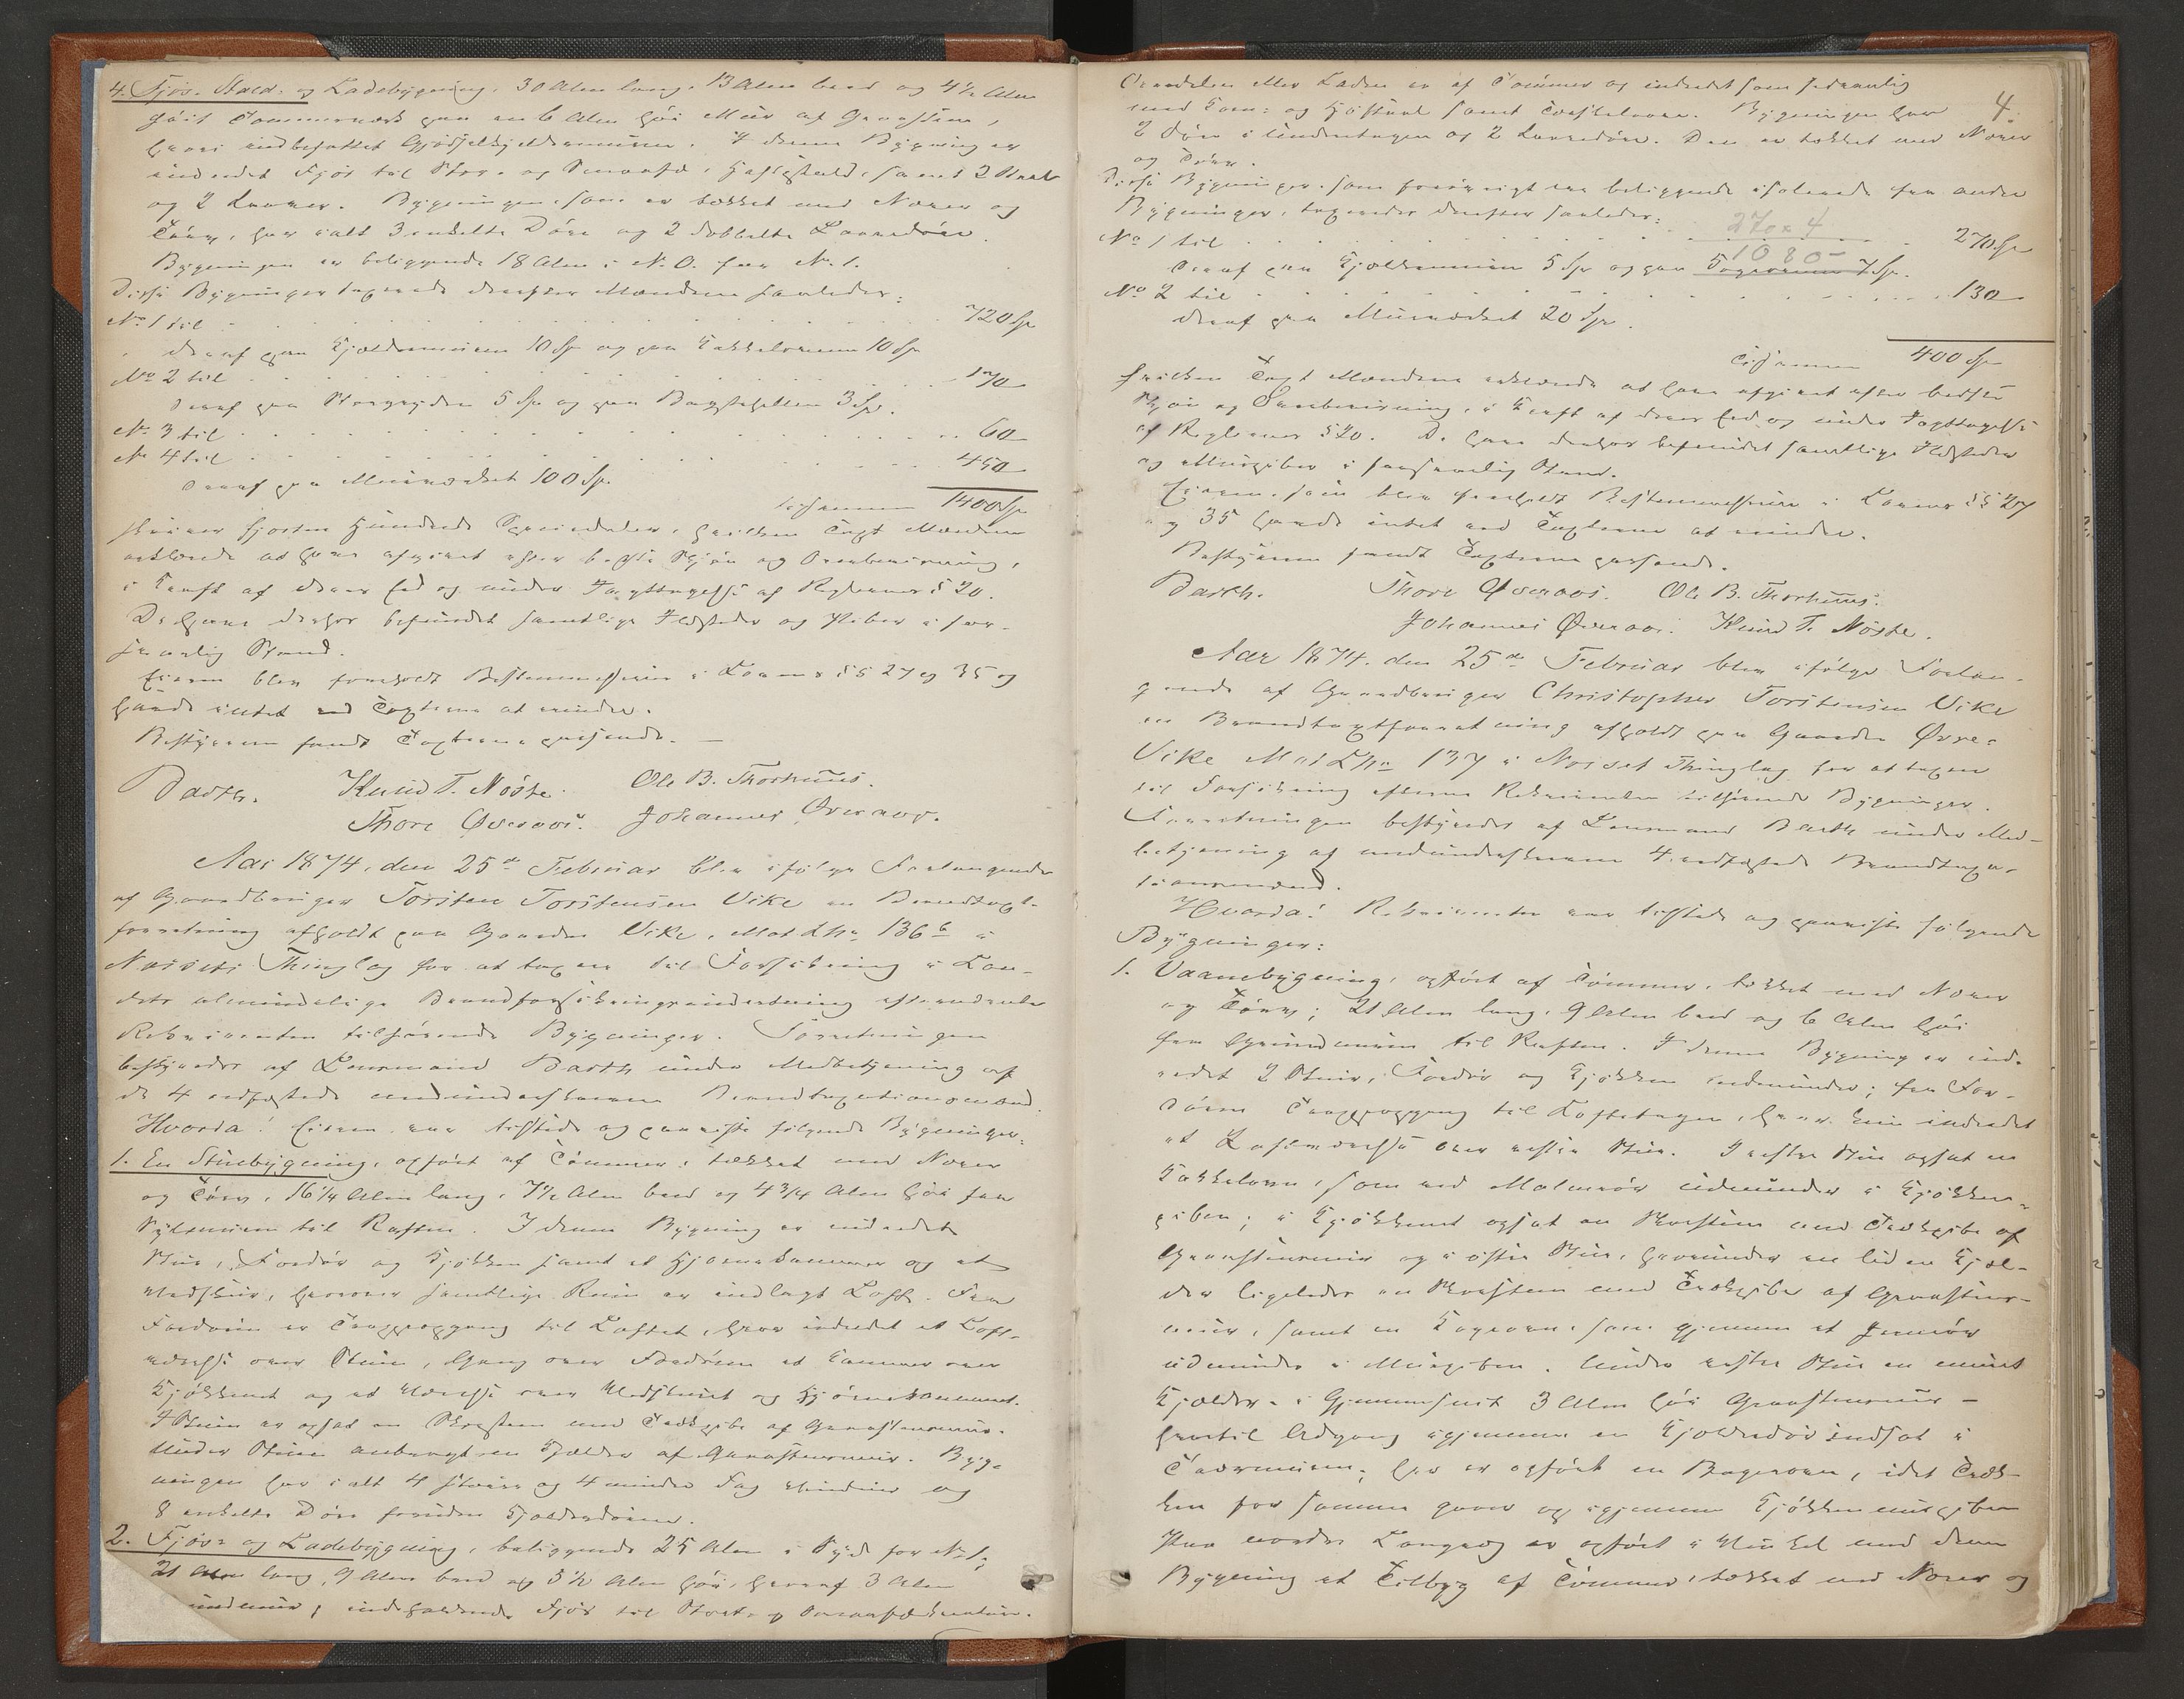 4. Fjös- Stald- og Ladebygning, 30 Alen lang, 13 Alen bred og 4½ Alen
höit Tømmerværk paa en 6 Alen höi Muur af Graasteen,
heri indbefattet Gjödselkjeldermuren. I denne Bygning er
indredet Fjös til Stor- og Smaafæ, Hestestald, samt 2 Stael
og 2 Laaver. Bygningen, som er tækket med Næver og
Törv, har ialt 3 enkelte Döre og 2 dobbelte Laavedöre.
Bygningen er beliggende 18 Alen i N.O. fra No 1.
Disse Bygninger taxerede derefter Mændene saaledes:
No 1 til 720 Sp
deraf paa Kjeldermuren 10 Sp og paa Kakkelovnene 10 Sp
No 2 til 170
deraf paa 5 Sp og paa 3 Sp.
No 3 til 60
No 4 til 450
deraf paa Muurværket 100 Sp.
tilsammen 1400 Sp
skriver fjorten Hundrede Speciedaler, hvilken Taxt Mændene
erklærede at have afgivet efter bedste Skjön og Overbeviisning,
i Kraft af deres Eed og under Iagttagelse af Reglernes § 20.
De havde derhos befundet samtlige Ildsteder og Piber i for-
svarlig Stand.
Eieren blev foreholdt Bestemmelserne i Lovens §§ 27 og 35 og
havde intet ved Taxterne at erindre.
Bestyreren fandt Taxterne passende. —
Barth. Knud T. Nöste. Ole B. Thorhuus.
Thore Øveraas. Johannes Øveraas.
Aar 1874, den 25de Februar blev ifølge Forlangende
af Gaardbruger Torsten Torstensen Vike en Brandtaxt-
forretning afholdt paa Gaarden Vike, Mat Lno 136b i
Næssets Thinglag for at taxere til Forsikring i Lan-
dets almindelige Brandforsikringsindretning efternævnte
Rekvirenten tilhörende Bygninger. Forretningen
bestyredes af Lensmand Barth under Medbetjening af
de 4 edfæstede medunderskrevne Brandtaxationsmænd.
Hvorda! Eieren var tilstede og paaviste fölgende Bygninger:
1. En Stuebygning, opfört af Tömmer, tækket med Næver
og Törv, 16¼ Alen lang, 7½ Alen bred og 4¾ Alen höi fra
Syldmuren til Raften. I denne Bygning er indredet
Stue, Fordör og Kjökken samt et Hjørnekammer og et
Vedskuur, hvorover samtlige Rum er indlagt Loft. Fra
Fordören er Trappeopgang til Loftet, hvor indredet et Loft-
værelse over Stuen, Gang over Fordören et Kammer over
Kjökkenet og et Værelse over Vedskuret og Hjörnekammeret.
I Stuen er opsat en Skorsteen med Trækpibe af Graasteensmuur.
Under Stuen anbragt en Kjelder af Graasteensmuur. Byg-
ningen har ialt 4 större og 4 mindre Fag Vinduer og
8 enkelte Döre foruden Kjelderdören.
2. Fjös- og Ladebygning, beliggende 25 Alen i Syd for No 1,
21 Alen lang, 9 Alen bred og 5½ Alen höi, hvoraf 3 Alen
indeholdende Fjös til Stort- og Smaafækreaturer.
4.
eller Laden er af Tömmer og indredet som sedvanlig
med Korn- og Höstaal samt Træskelaave. Bygningen har
2 Döre i Underetagen og 2 Laavedöre. Den er tækket med Næver
og Törv.
Disse Bygninger, som forövrigt ere beliggende isolerede fra andre
Bygninger, taxeredes derefter saaledes:
270 x 4
1080 -
No 1 til 270 Sp
deraf paa Kjeldermuren 5 Sp og paa Bageovnen 7 Sp.
No 2 til 130
deraf paa Muurværket 20 Sp.
tilsammen 400 Sp
hvilken Taxt Mændene erklærede at have afgivet efter bedste
Skjön og Overbeviisning, i Kraft af deres Eed og under Iagttagelse
af Reglernes § 20. De have derhos befundet samtlige Ildsteder
og Muurpiber i forsvarlig Stand.
Eieren, som blev foreholdt Bestemmelserne i Lovens §§ 27
og 35 havde intet ved Taxterne at erindre.
Bestyreren fandt Taxterne passende.
Barth. Thore Øveraas. Ole B. Thorhuus.
Johannes Øveraas. Knud T. Nöste.
Aar 1874, den 25de Februar blev ifølge Forlan-
gende af Gaardbruger Christopher Torstensen Vike
en Brandtaxtforretning afholdt paa Gaarden Øvre-
Vike Mat Lno 137 i Næsset Thinglag for at taxere
til Forsikring efternævnte Rekvirenten tilhörende Bygninger.
Forretningen bestyredes af Lensmand Barth under Med-
betjening af medunderskrevne 4 edfæstede Brandtaxa-
tionsmænd.
Hvorda! Rekvirenten var tilstede og paaviste følgende
Bygninger:
1. Vaanebygning, opfört af Tömmer, tækket med Næver
og Törv; 21 Alen lang, 9 Alen bred og 6 Alen höi
fra Grundmuren til Raften. I denne Bygning er ind-
redet 2 Stuer, Fordör og Kjökken nedenunder; fra For-
dören Trappeopgang til Loftetagen, hvor kun indredet
et Loftværelse over vestre Stue. I vestre Stue opsat en
Kakkelovn, som ved Malmrör udmunder i Kjökken-
piben; i Kjökkenet opsat en Skorsteen med Trækpibe af
Graasteensmuur og i östre Stue, hvorunder en liden Kjel-
der ligeledes en Skorsteen med Trækpibe af Graasteens-
muur, samt en Kogeovn, som gjennem et Jernrör
udmunder i Muurpiben. Under vestre Stue en muret
Kjelder - i Gjennemsnit 3 Alen höi Graasteensmuur -
hvortil Adgang igjennem en Kjelderdör indsat i
Tværmuren; her er opfört en Bagerovn, idet Træk-
ken for samme gaaer op igjennem Kjökkenmuurpiben
Paa nordre Langvæg er opfört i Vinkel med denne
Bygning et Tilbyg af Tömmer, tækket med Næver og